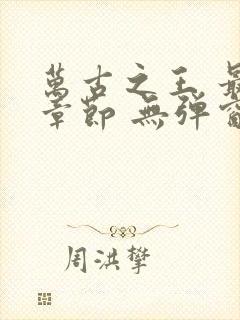 萬古之王 最
章節 無彈窗
周洪攀